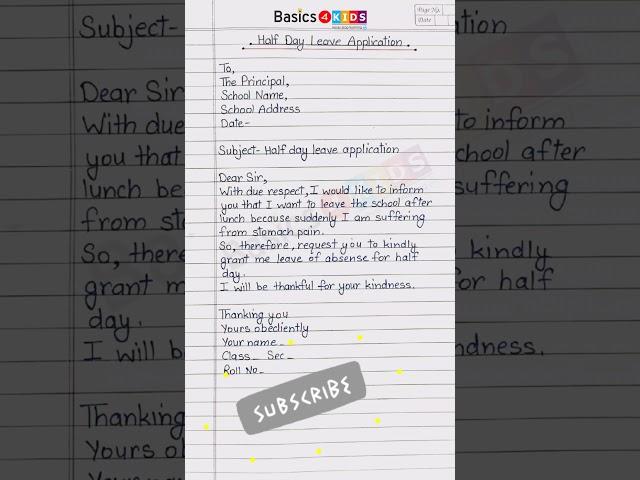 Basics 4 KIDS
Page No.
Date
Half Day Leave Application.
To,
The Principal,
School Name,
School Address
Date-
Subject- Half day leave application
Dear Sir,
With due respect, I would like to inform
you that I want to leave the school after
lunch because suddenly I am suffering
from stomach pain.
So, therefore, request you to kindly
grant me leave of absense for half
day.
I will be thankful for your kindness.
Thanking you
Yours obediently
Your name-
Class- Sec-
Roll No-
SUBSCRIBE
Subject-
tion
Dear Sir
With due
to inform
you that
chool after
lunch be
suffering
from sto
So, there
kindly
grant m
or half
day.
I will b
ndness.
Thanking
Yours ob